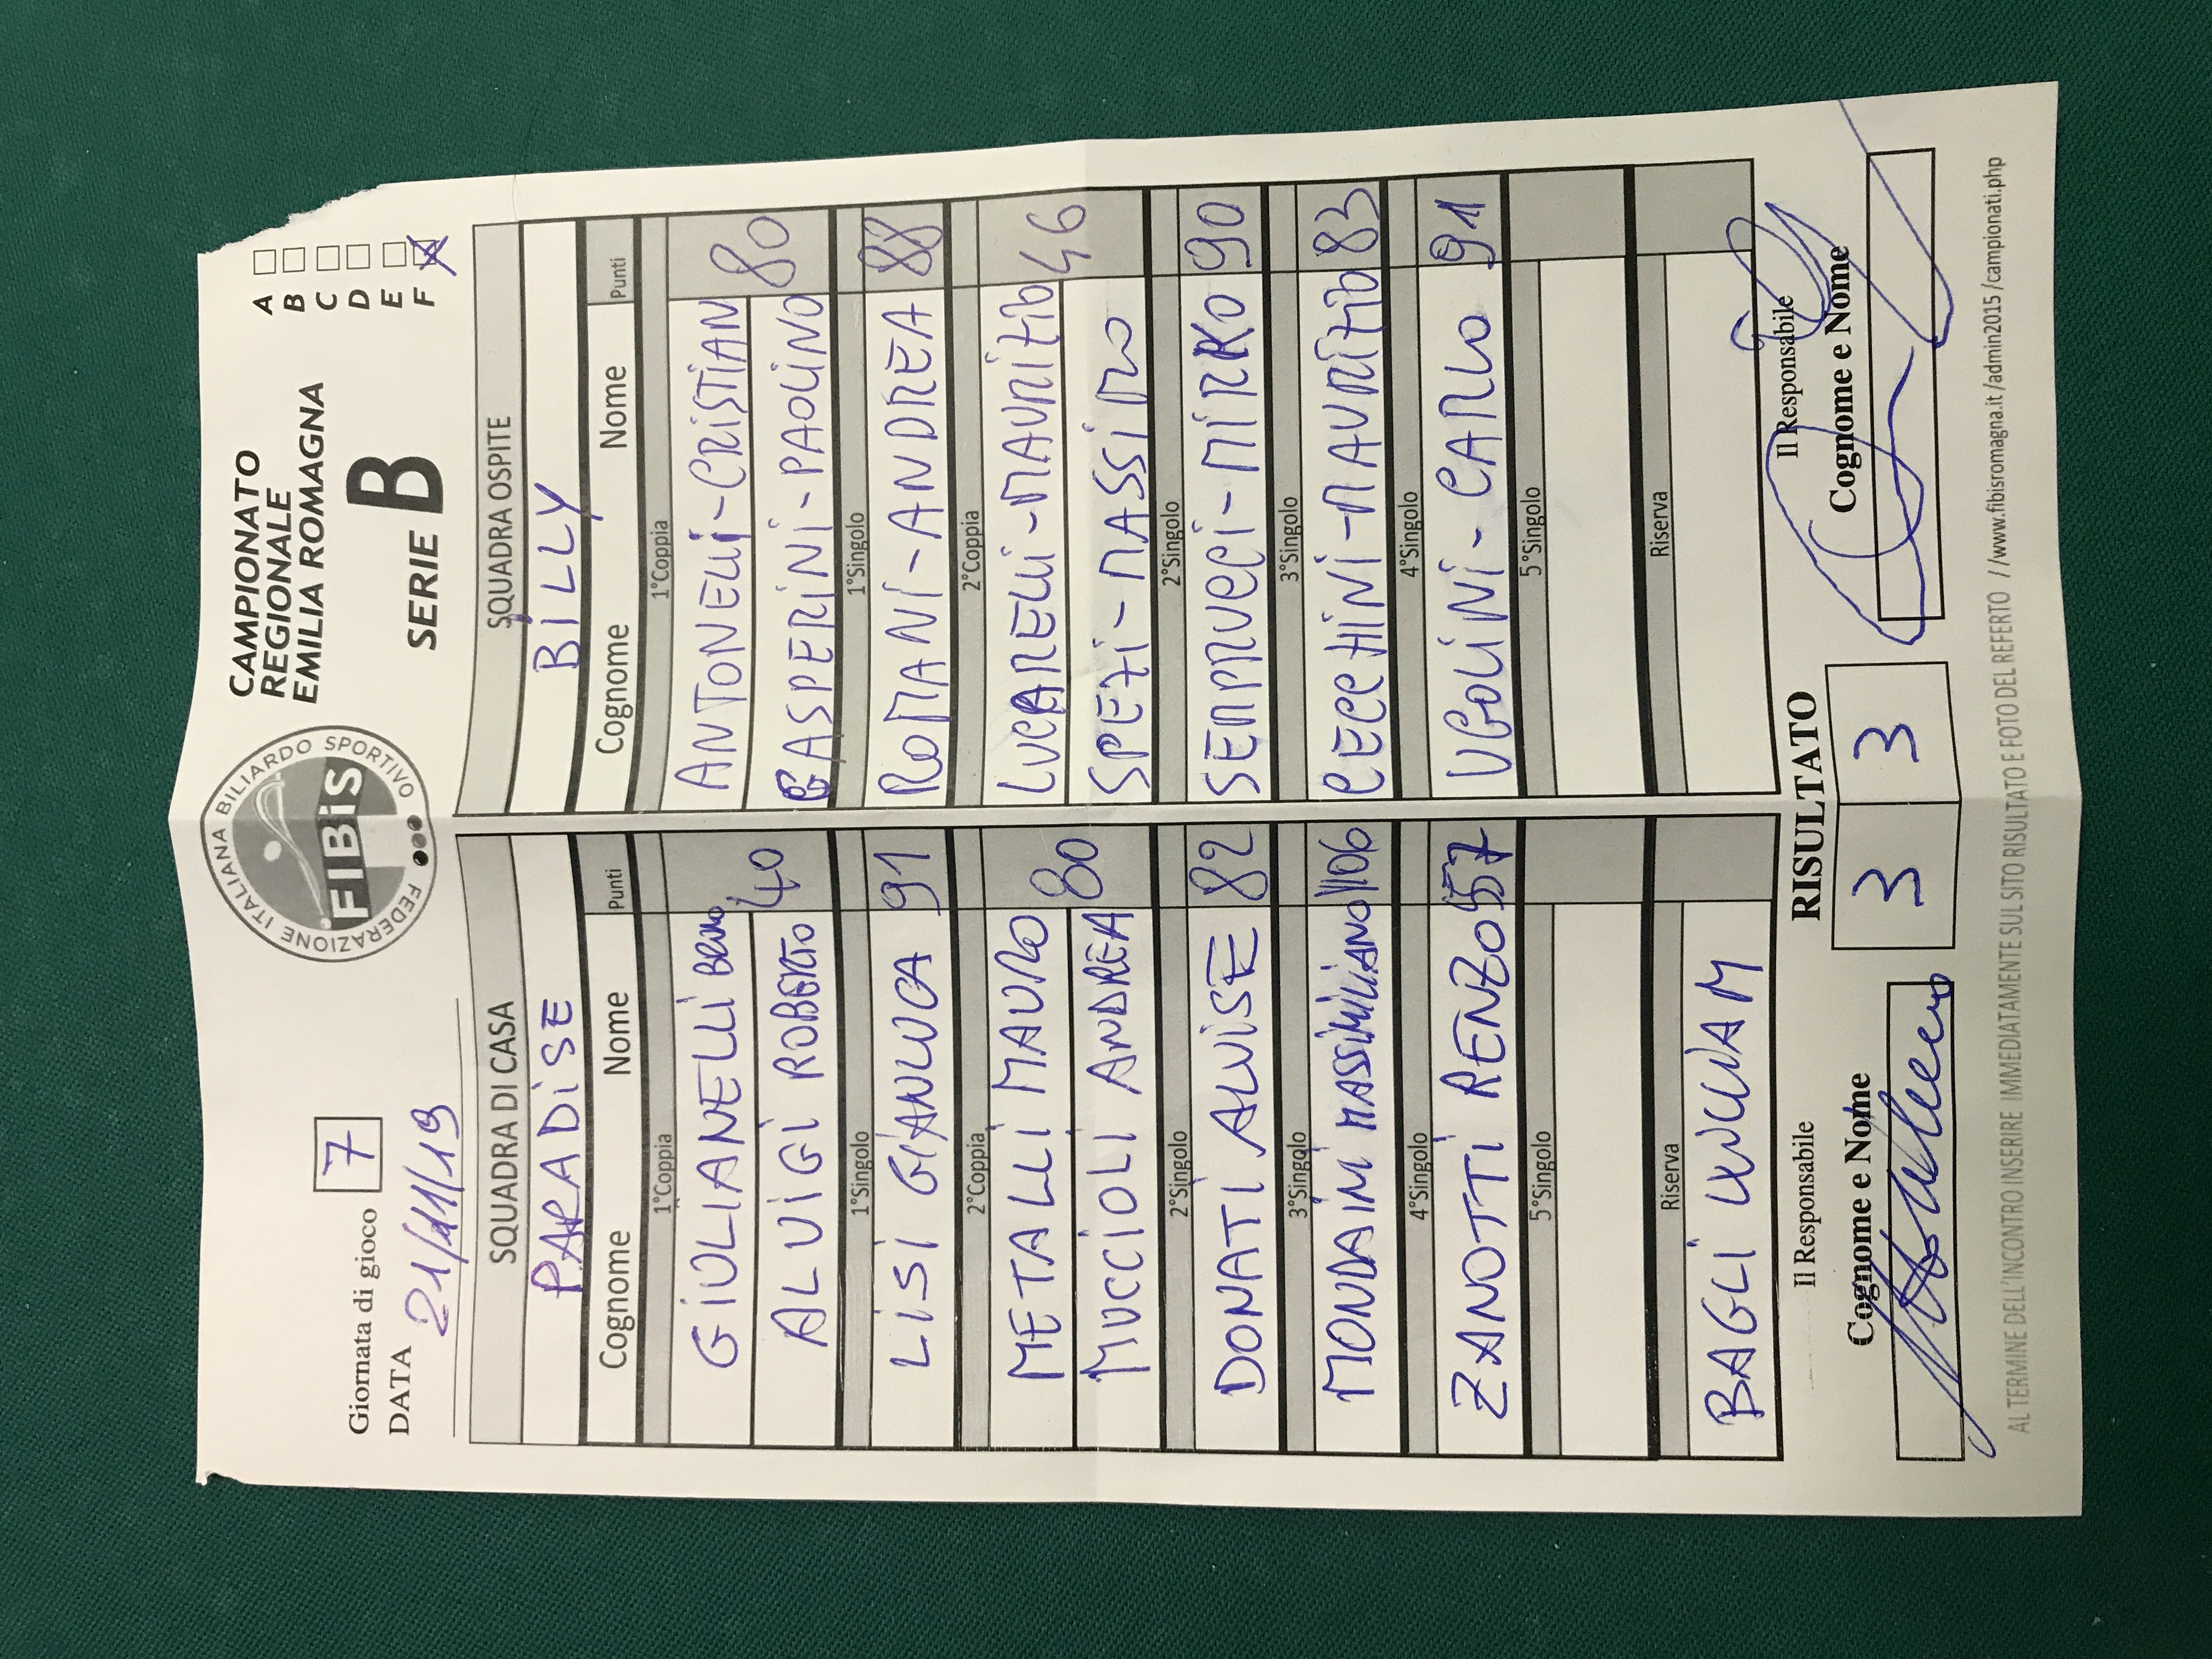 Giornata di gioco 7
DATA 21/11/19
FEDERAZIONE ITALIANA BILIARDO SPORTIVO
FIBiS
CAMPIONATO
REGIONALE
EMILIA ROMAGNA
SERIE B
A
B
C
D
E
F X
SQUADRA DI CASA SQUADRA OSPITE
PARADISE BILLY
Cognome Nome Punti Cognome Nome Punti
1°Coppia 1°Coppia
GIULIANELLI BRUNO ANTONELLI-CRISTIAN
40 80
ALUIGI ROBERTO GASPERINI-PAOLINO
1°Singolo 1°Singolo
LISI GIANLUCA 91 ROMANI-ANDREA 88
2°Coppia 2°Coppia
METALLI MAURO LUCARELLI-MAURIZIO
80 46
MUCCIOLI ANDREA SPEZI-MASSIMO
2°Singolo 2°Singolo
DONATI ALVISE 82 SEMPRUCCI-MIRKO 90
3°Singolo 3°Singolo
MONDAINI MASSIMILIANO 106 CECCHINI-MAURIZIO 83
4°Singolo 4°Singolo
ZANOTTI RENZO 57 UGOLINI-CARLO 91
5°Singolo 5°Singolo
Riserva Riserva
BAGLI
Il Responsabile RISULTATO Il Responsabile
Cognome e Nome 3 3 Cognome e Nome
AL TERMINE DELL'INCONTRO INSERIRE IMMEDIATAMENTE SUL SITO RISULTATO E FOTO DEL REFERTO //www.fibisromagna.it /admin2015 /campionati.php